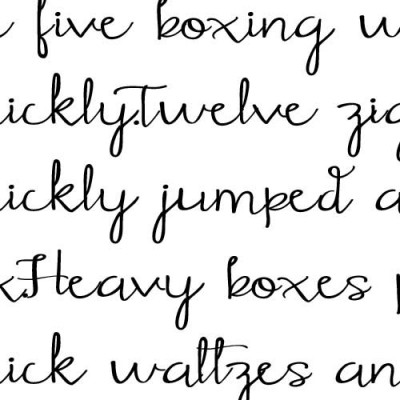 five boxing w
ickly.Twelve zig
ickly jumped a
x.Heavy boxes p
ick waltzes an